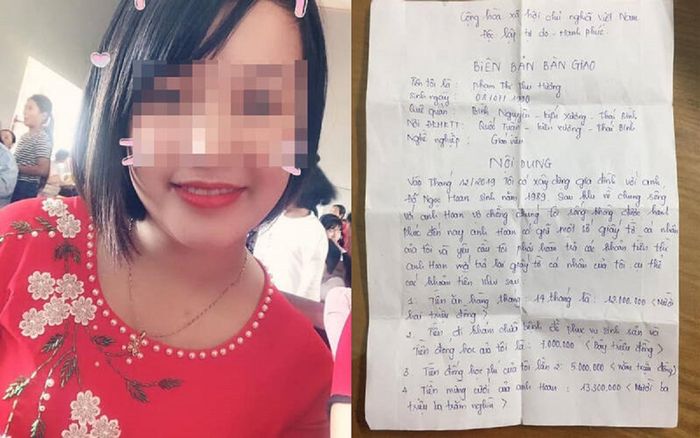 Cộng hòa xã hội chủ nghĩa Việt Nam
Độc lập tự do - Hạnh phúc.
BIÊN BẢN BÀN GIAO
Tên tôi là : Phạm Thị Thu Hương
Sinh ngày : 08/07/1990
Quê quán : Bình Nguyên - Kiến Xương - Thái Bình
Nơi ĐKHKTT: Quốc Tuấn - Kiến Xương - Thái Bình
Nghề nghiệp: Giáo viên
NỘI DUNG
Vào Tháng 12/2019 Tôi có xây dựng gia đình với anh
Đỗ Ngọc Hoan sinh năm 1989. Sau khi về chung sống
với anh Hoan vợ chồng chúng tôi sống không được hạnh
phúc đến nay anh Hoan có giữ một số giấy tờ cá nhân
của tôi và yêu cầu tôi phải hoàn trả các khoản tiền thì
anh Hoan mới trả lại giấy tờ cá nhân của tôi cụ thể
các khoản tiền như sau
1. Tiền ăn hàng tháng 14 tháng là : 12.000.000 < Mười
hai triệu đồng >
2. Tiền đi khám chữa bệnh để phục vụ sinh sản và
Tiền đóng học của tôi là : 7.000.000 < bảy triệu đồng >
3. Tiền đóng học phí của tôi lần 2: 5.000.000 < năm triệu đồng >
4 Tiền mừng cưới của anh Hoan : 13.300.000 < Mười ba
triệu ba trăm nghìn >